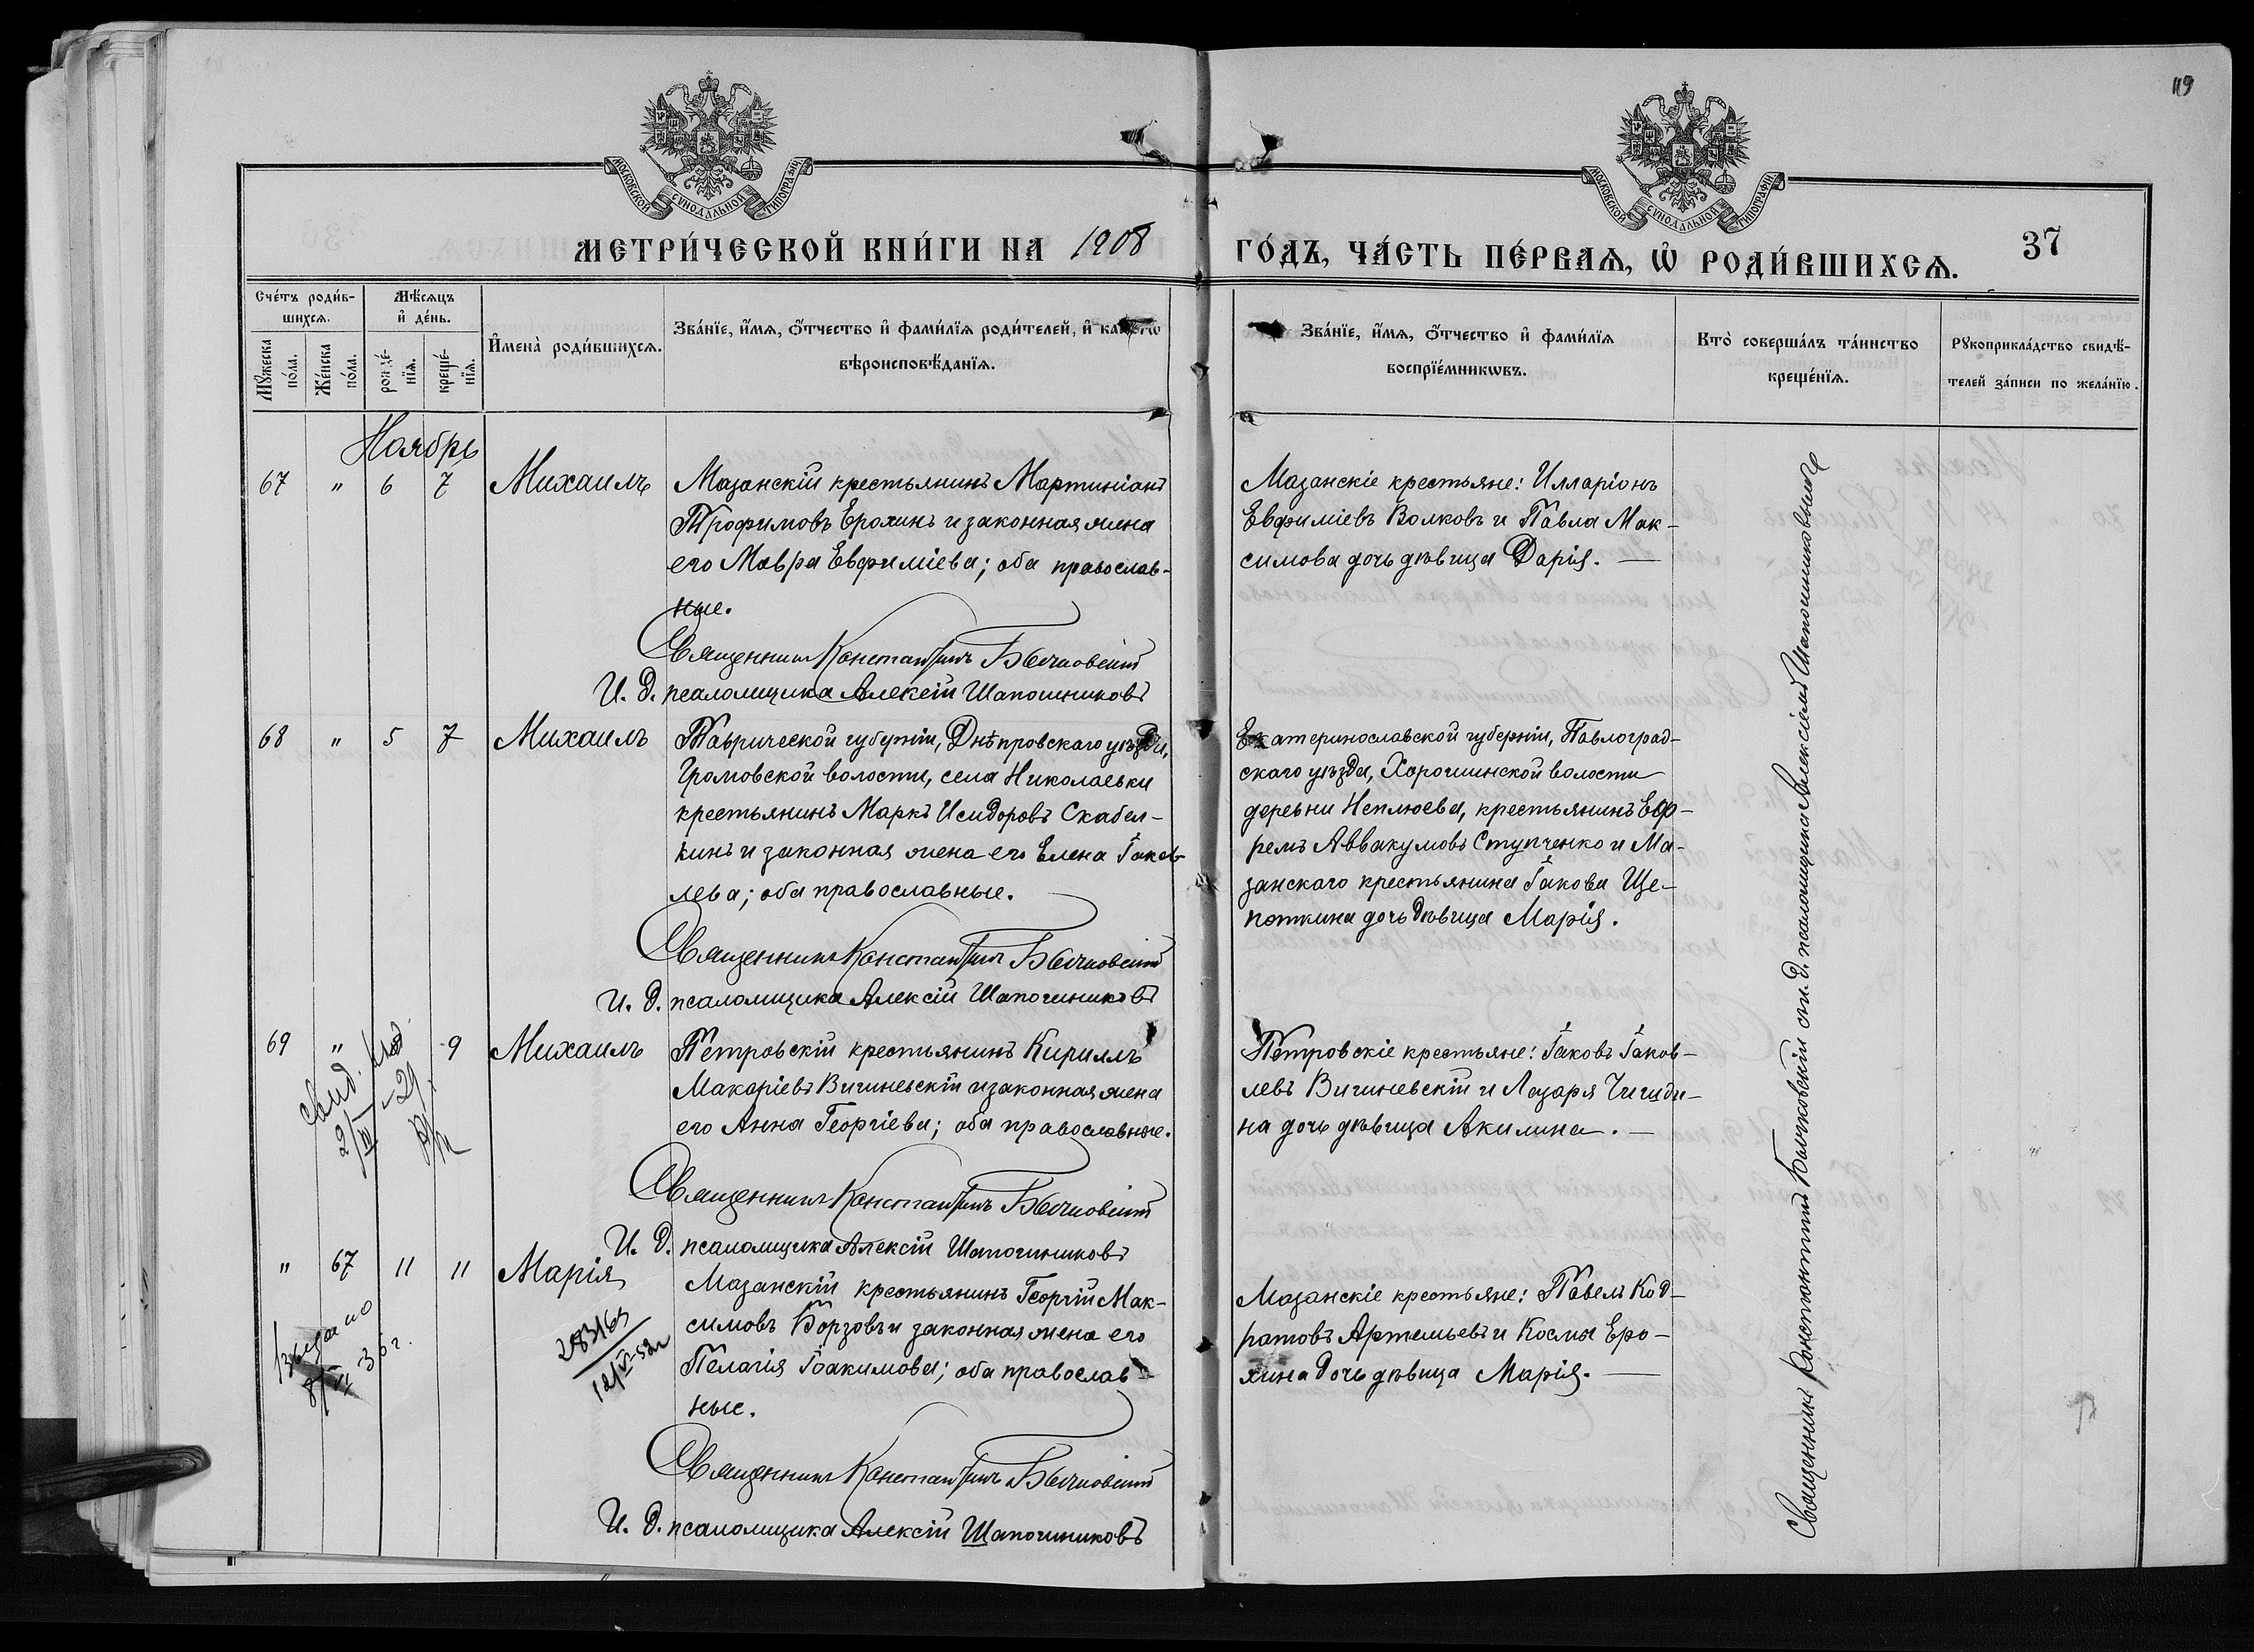 119
МОСКОВСКОЙ СѴНОДАЛЬНОЙ ТИПОГРАФІИ
МОСКОВСКОЙ СѴНОДАЛЬНОЙ ТИПОГРАФІИ
МЕТРИ́ЧЕСКОЙ КНИ́ГИ НА 1908 ГО́ДЪ, ЧА́СТЬ ПЕ́РВАѦ, Ѡ҆ РОДИ́ВШИХСѦ. 37
Счéтъ роди́в-
шихсѧ.
Мꙋ́жеска
по́ла.
Же́нска
по́ла.
Мѣ́сѧцъ
и҆ де́нь.
рожде́-
нїѧ.
креще́-
нїѧ.
И҆мена̀ роди́вшихсѧ.
Зва́нїе, и҆́мѧ, ѻ҆́тчество и҆ фами́лїѧ роди́телей, и҆ какогѡ
вѣроисповѣ́данїѧ.
Зва́нїе, и҆́мѧ, ѻ҆́тчество и҆ фами́лїѧ
воспрїе́мникѡвъ.
Кто̀ соверша́лъ та́инство
креще́нїѧ.
Рꙋкоприкла́дство свидѣ́-
телей за́писи по жела́нїю.
Ноябрь
67 " 6 7 Михаилъ
Мазанскій крестьянинъ Мартиніанъ
Трофимовъ Ерохинъ и законная жена
его Мавра Евфиміева; оба православ-
ные.
Священникъ Константинъ Бычковскій
И. д. псаломщика Алексій Шапошниковъ
Мазанскіе крестьяне: Илларіонъ
Евфиміевъ Волковъ и Павла Мак-
симова дочь дѣвица Дарія.
68 " 5 7 Михаилъ
Таврической губерніи, Днѣпровскаго уѣзда,
Громовской волости, села Николаевки
крестьянинъ Маркъ Исидоровъ Скабел-
кинъ и законная жена его Елена Іаков-
лева; оба православные.
Священникъ Константинъ Бычковскій
И. д. псаломщика Алексій Шапошниковъ
Екатеринославской губерніи, Павлоград-
скаго уѣзда, Хорошинской волости
деревни Неплюева, крестьянинъ Еф-
ремъ Аввакумовъ Ступченко и Ма-
занскаго крестьянина Іакова Ще-
поткина дочь дѣвица Марія.
69 " 9 Михаилъ
Петровскій крестьянинъ Кириллъ
Макаріевъ Вишневскій и законная жена
его Анна Георгіева; оба православные.
Священникъ Константинъ Бычковскій
И. д. псаломщика Алексій Шапошниковъ
Петровскіе крестьяне: Іаковъ Іаков-
левъ Вишневскій и Лазаря Чигиди-
на дочь дѣвица Акилина.
" 67 11 11 Марія
283163
12/VI-52г
36 г.
Мазанскій крестьянинъ Георгій Мак-
симовъ Борзовъ и законная жена его
Пелагія Іоакимова; оба православ-
ные.
Священникъ Константинъ Бычковскій
И. д. псаломщика Алексій Шапошниковъ
Мазанскіе крестьяне: Павелъ Код-
ратовъ Артемьевъ и Косма Еро-
хина дочь дѣвица Марія.
Священникъ Константинъ Бычковскій съ и. д. псаломщика Алексіемъ Шапошниковымъ